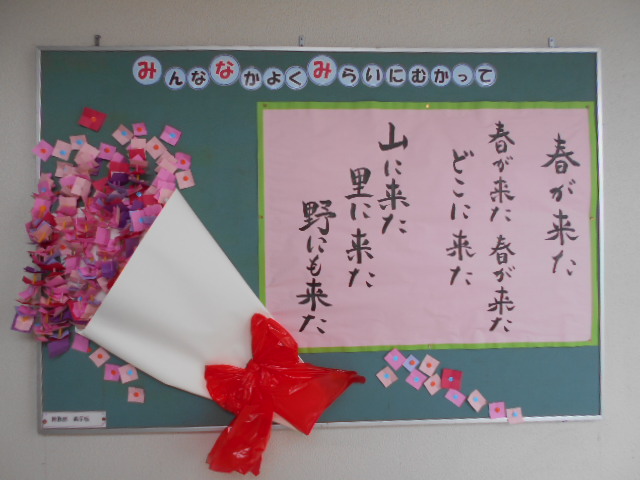 みんななかよくみらいにむかって
春が来た
春が来た 春が来た
どこに来た
山に来た
里に来た
野にも来た